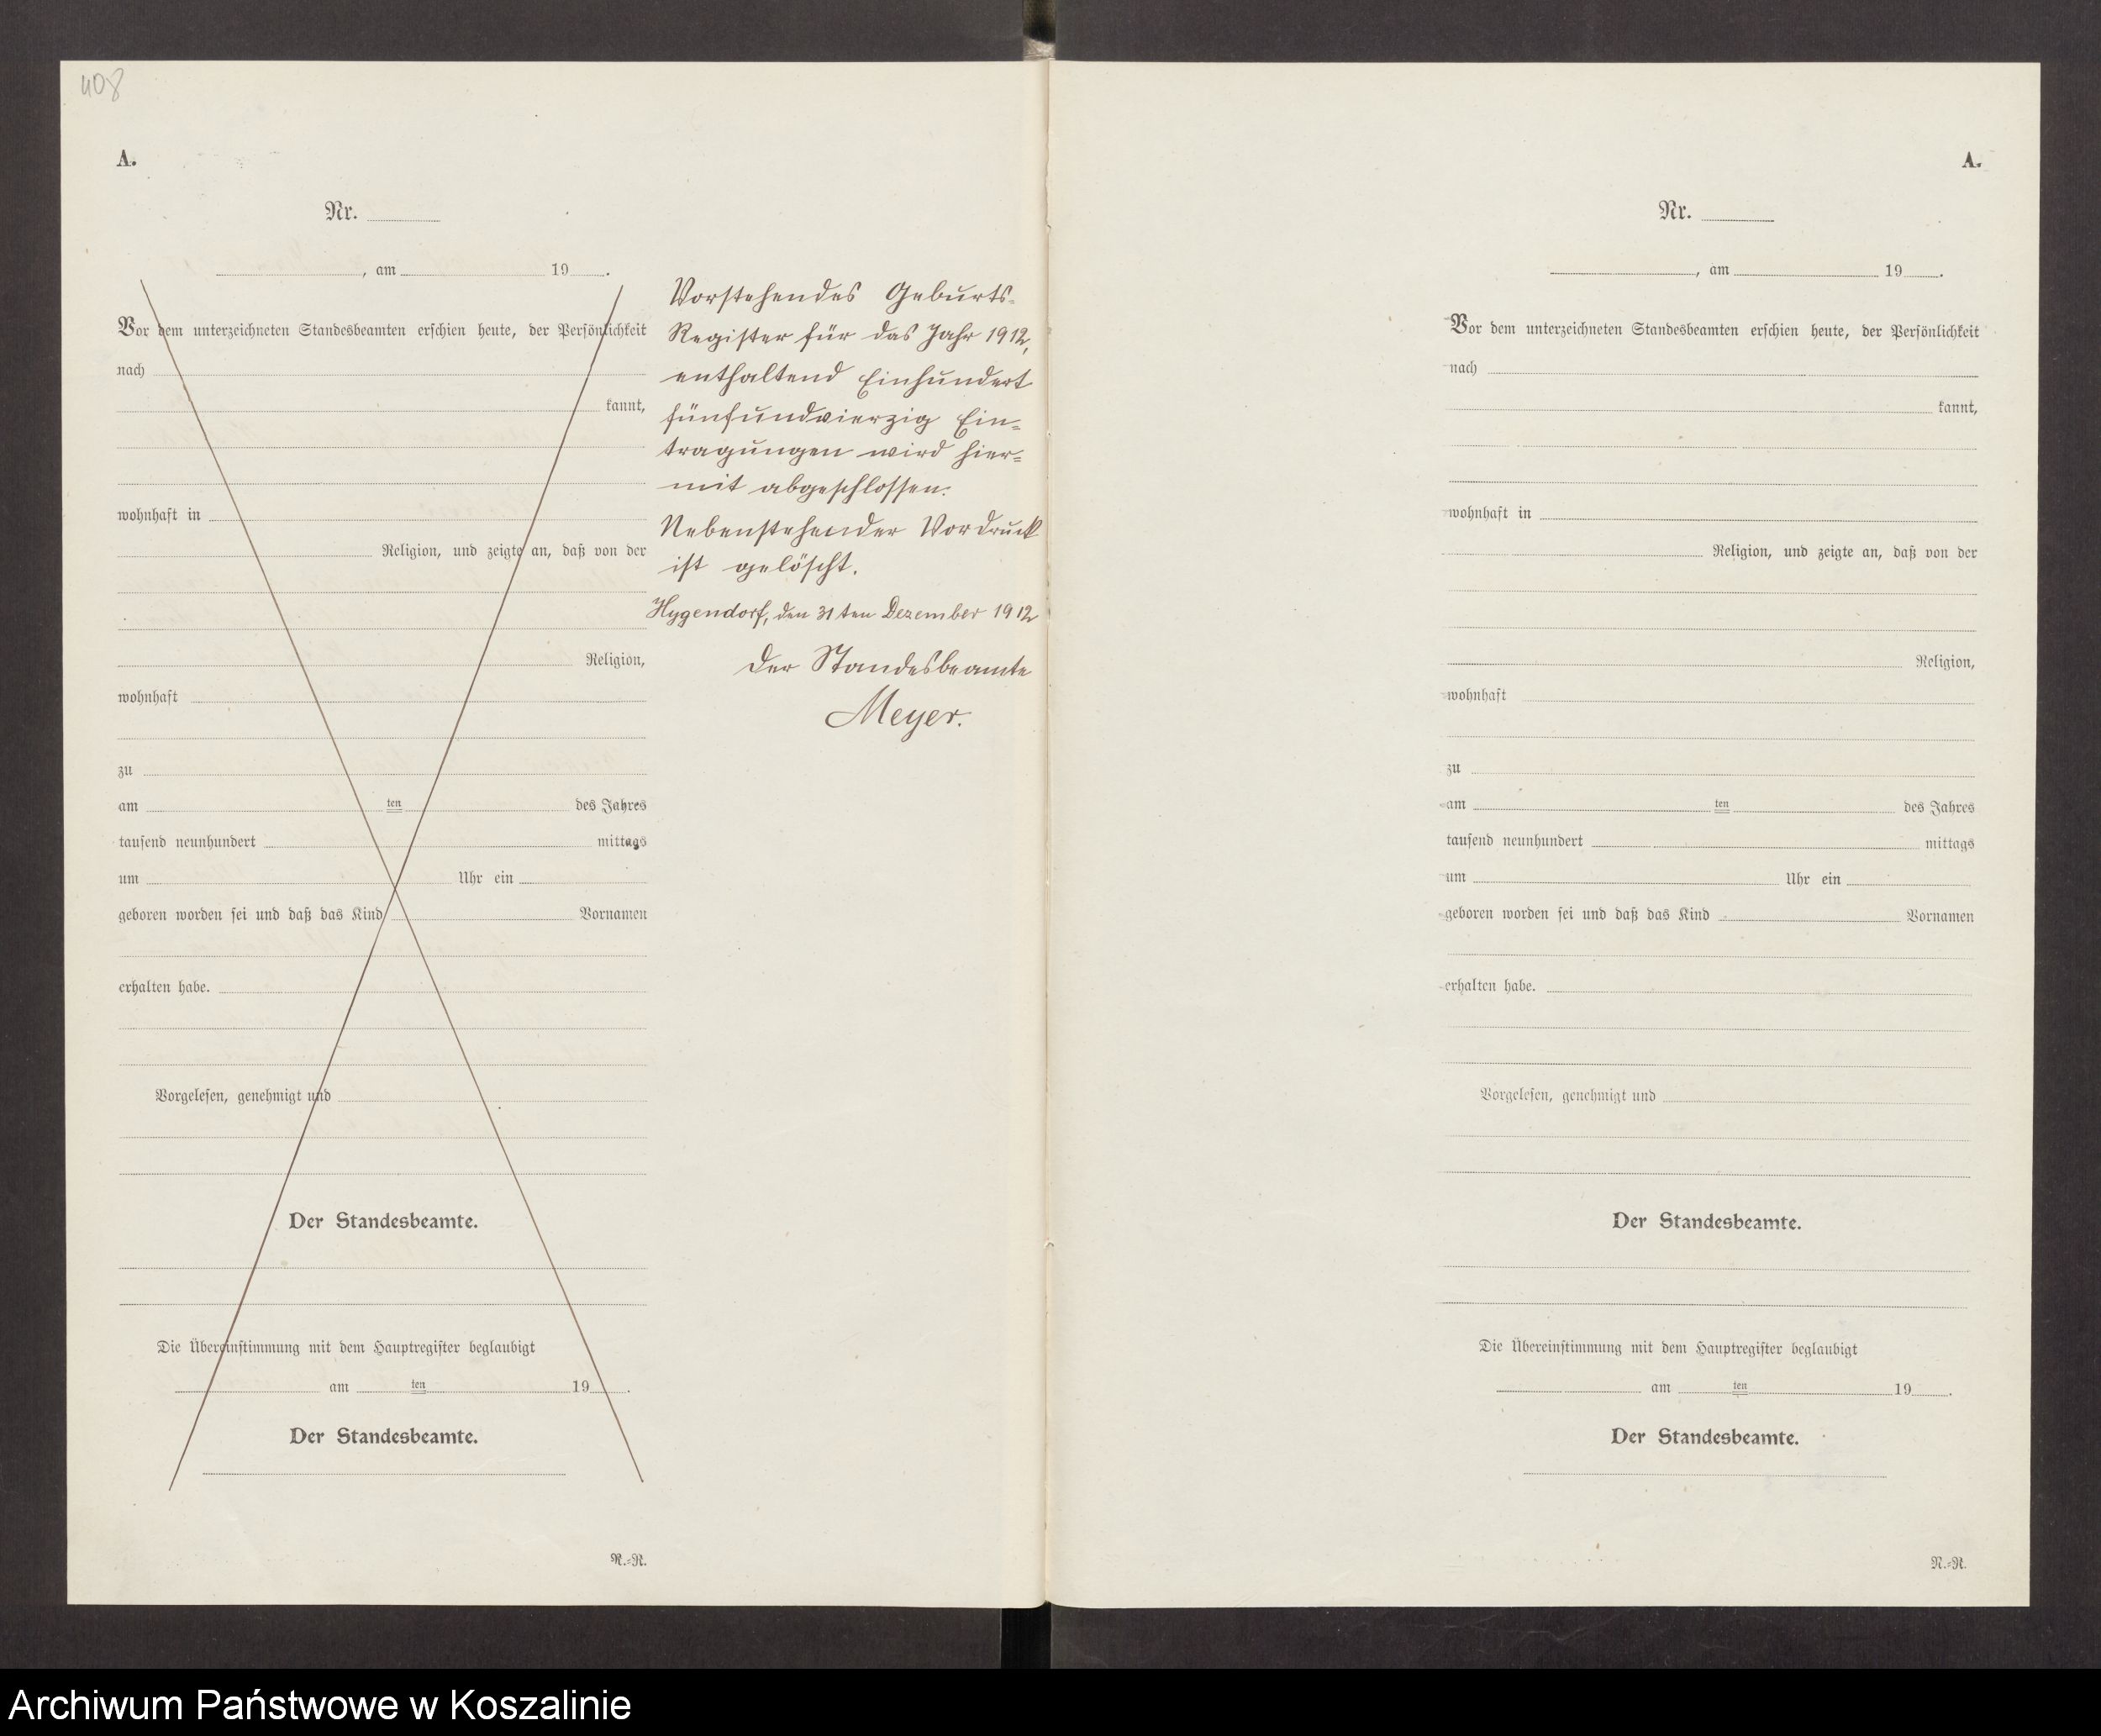 408
A.
Nr.
, am 19 .
Vor dem unterzeichneten Standesbeamten erschien heute, der Persönlichkeit
nach
kannt,
wohnhaft in
Religion, und zeigte an, daß von der
Religion,
wohnhaft
zu
am ten des Jahres
tausend neunhundert mittags
um Uhr ein
geboren worden sei und daß das Kind Vornamen
erhalten habe.
Vorgelesen, genehmigt und
Der Standesbeamte.
Die Übereinstimmung mit dem Hauptregister beglaubigt
am ten 19 .
Der Standesbeamte.
N.-R.
Vorstehendes Geburts-
Register für das Jahr 1912,
enthaltend Einhundert
fünfundvierzig Ein-
tragungen wird hier-
mit abgeschlossen.
Nebenstehender Vordruck
ist gelöscht.
Hygendorf, den 31ten Dezember 1912
Der Standesbeamte
Meyer.
A.
Nr.
, am 19 .
Vor dem unterzeichneten Standesbeamten erschien heute, der Persönlichkeit
nach
kannt,
wohnhaft in
Religion, und zeigte an, daß von der
Religion,
wohnhaft
zu
am ten des Jahres
tausend neunhundert mittags
um Uhr ein
geboren worden sei und daß das Kind Vornamen
erhalten habe.
Vorgelesen, genehmigt und
Der Standesbeamte.
Die Übereinstimmung mit dem Hauptregister beglaubigt
am ten 19 .
Der Standesbeamte.
N.-R.
Archiwum Państwowe w Koszalinie